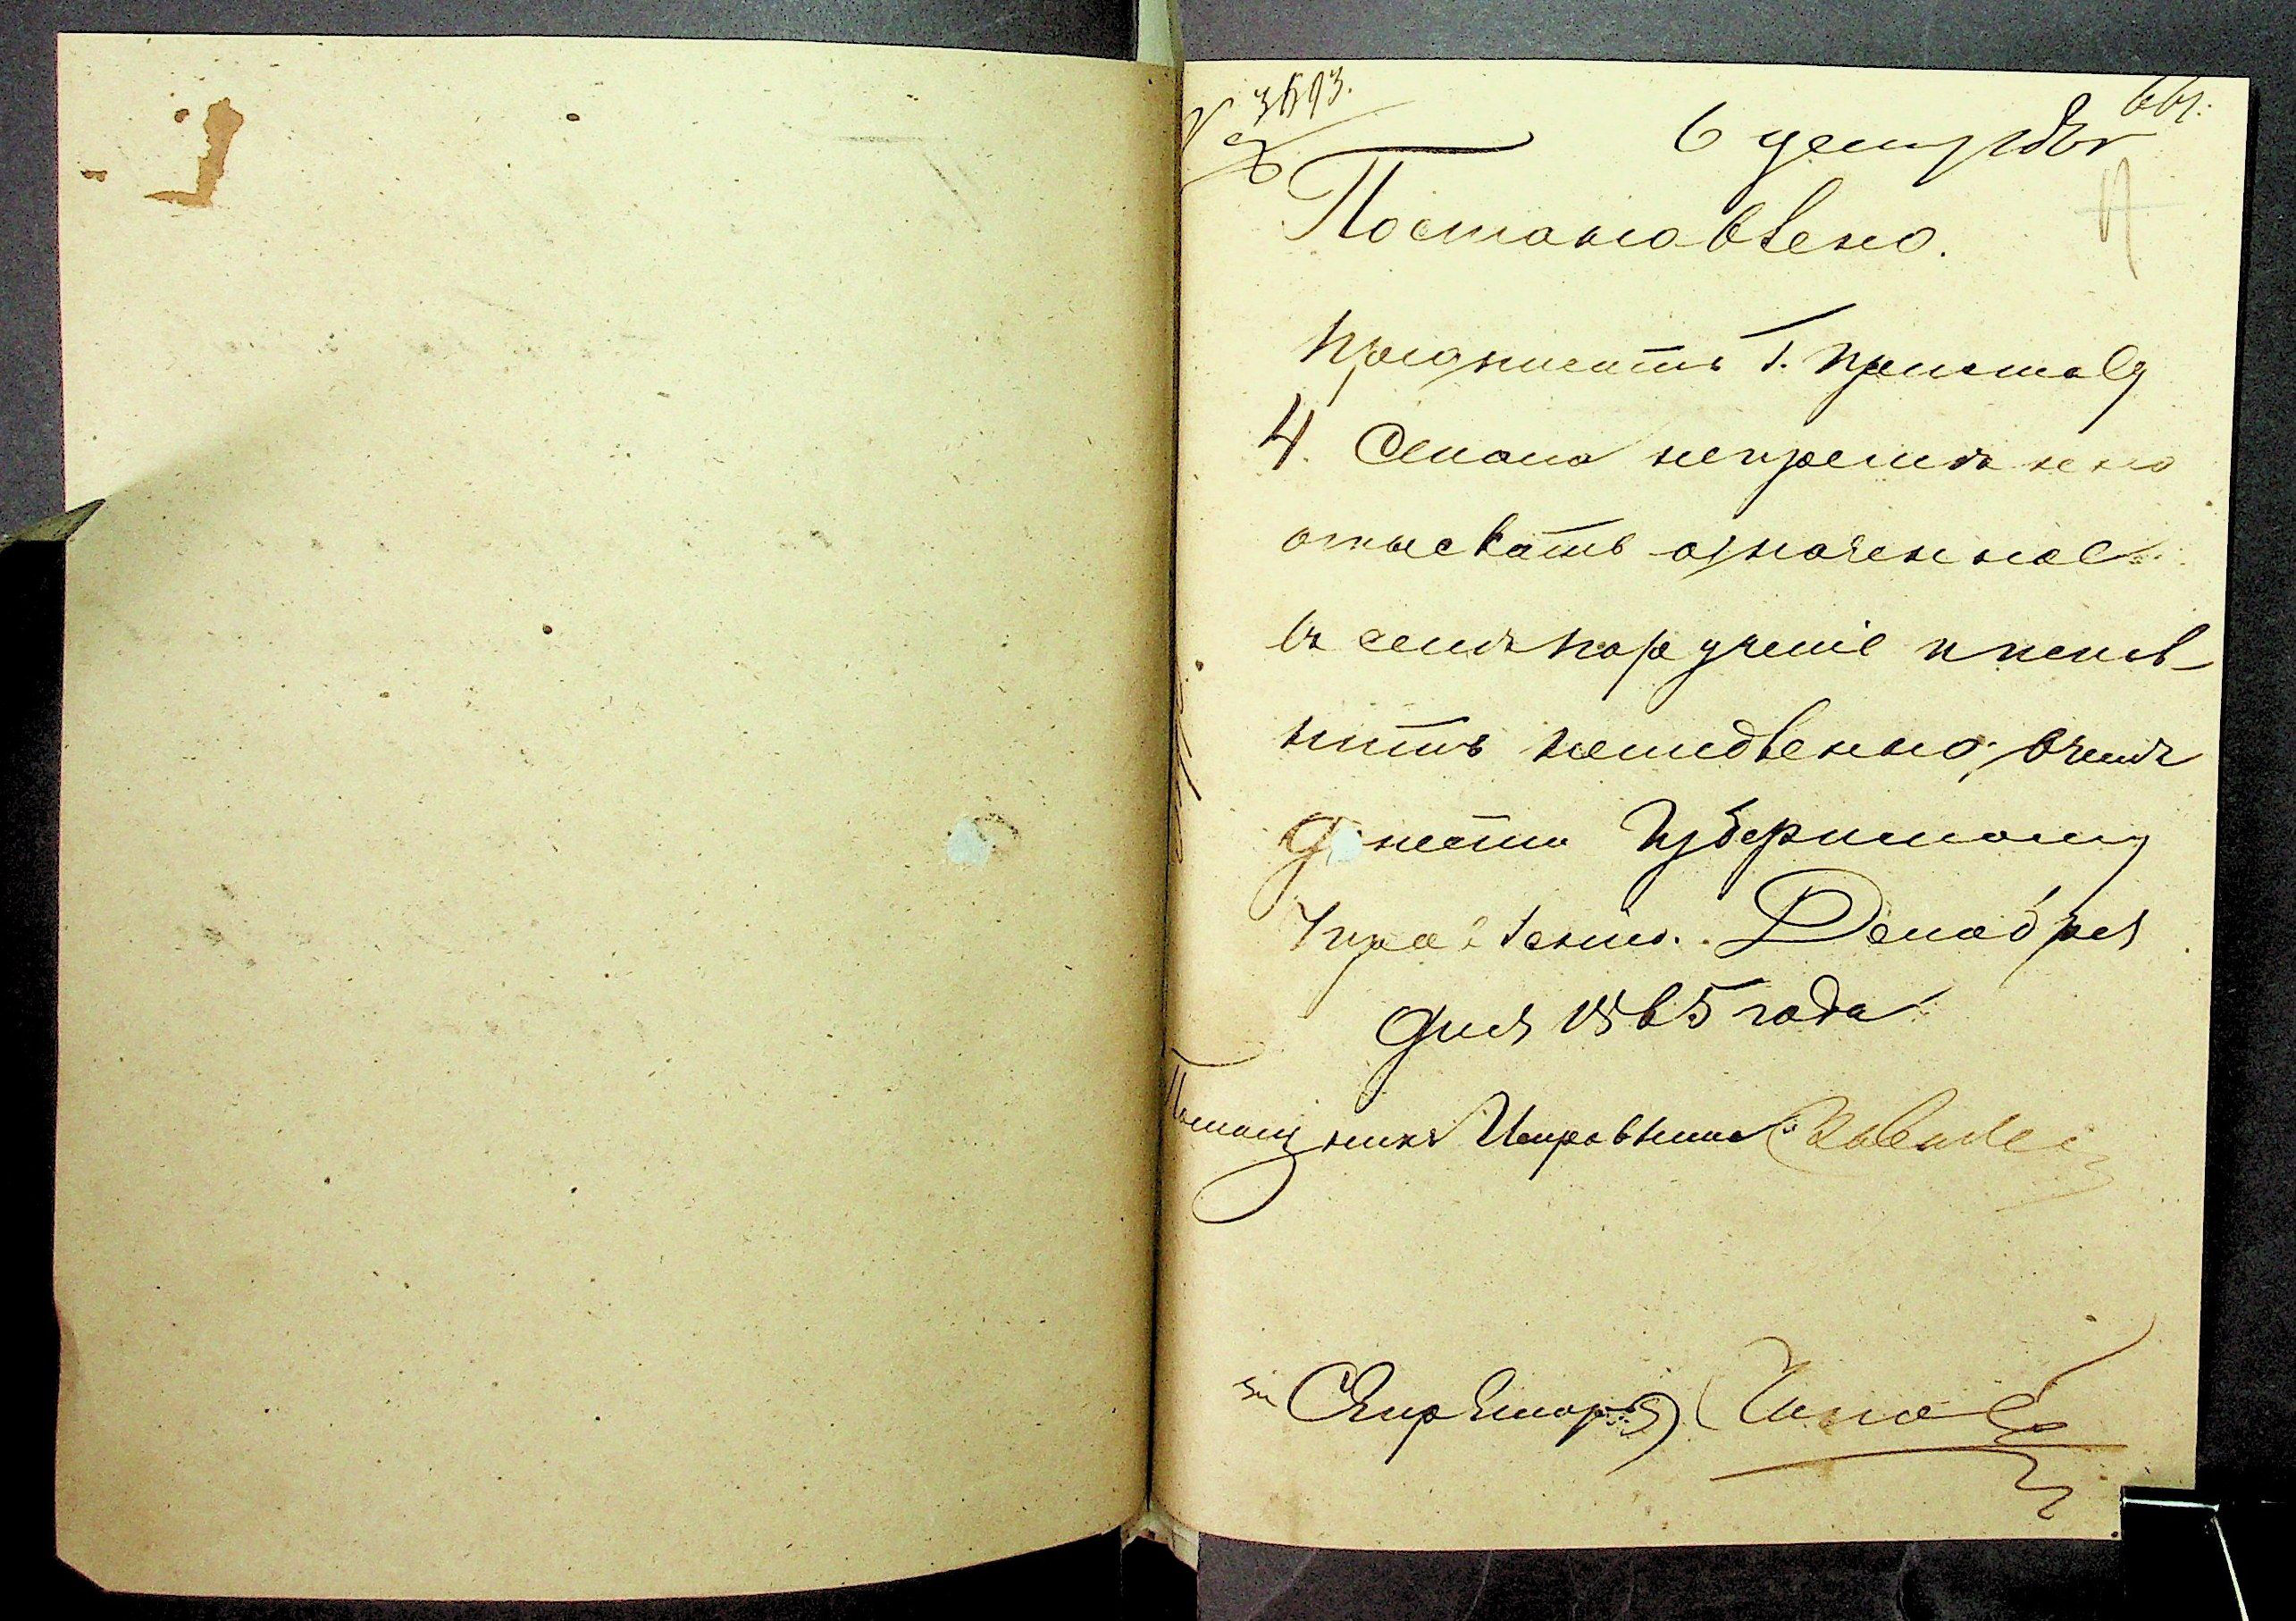 3593.
6 декабря
Постановлено.
Предписать Г. Приставу
4. Стана непременно
отыскать означенное
въ семъ порученіе и испол-
нить немедленно, о чемъ
донести Губернскому
Правленію. Декабря
дня 1865 года
Помощникъ Исправника
Секретарь